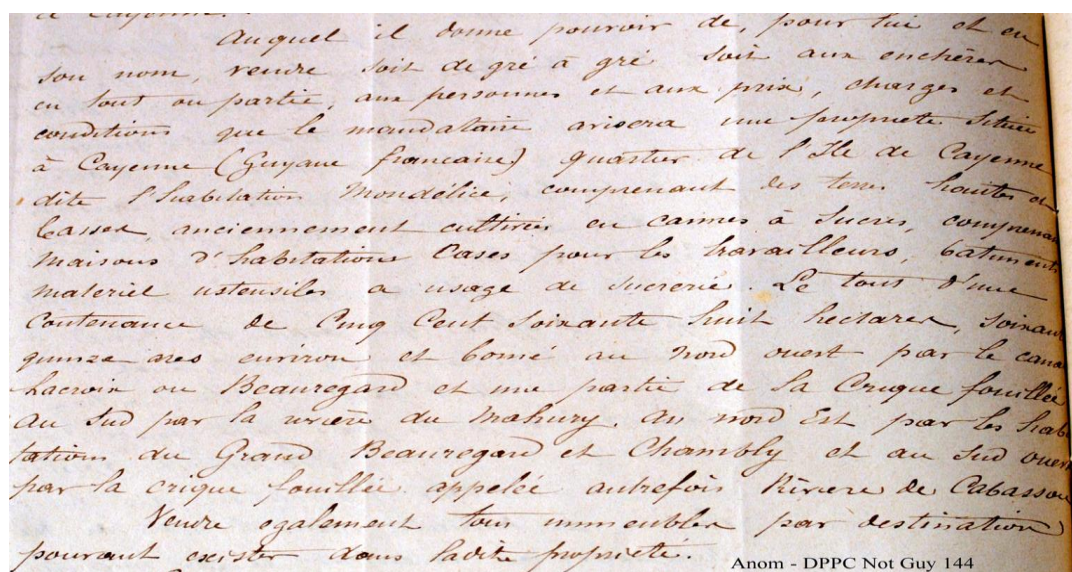 à Cayenne.
Auquel il donne pouvoir de, pour lui et en
son nom, vendre soit de gré à gré soit aux enchères
en tout ou partie, aux personnes et aux prix, charges et
conditions que le mandataire avisera une propriete située
à Cayenne (Guyane française) quartier de l'Ile de Cayenne
dite l'habitation Mondélice, comprenant des terres hautes et
basses, anciennement cultivées en cannes à sucres, comprenan
maisons d'habitations Cases pour les travailleurs, bâtiments
materiel ustensiles a usage de sucrerie. Le tout d'une
Contenance de Cinq Cent soixante huit hectares, soixan
quinze ares environ et borné au nord ouest par le cana
Lacroix ou Beauregard et une partie de la Crique fouillée
au sud par la rivière du Mahury, au nord Est par les hab
tations du Grand Beauregard et Chambly et au sud ouest
par la crique fouillée appelée autrefois Rivière de Cabassou
Vendre egalement tous immeubles par destination
pouvant exister dans ladite propriété.
Anom - DPPC Not Guy 144